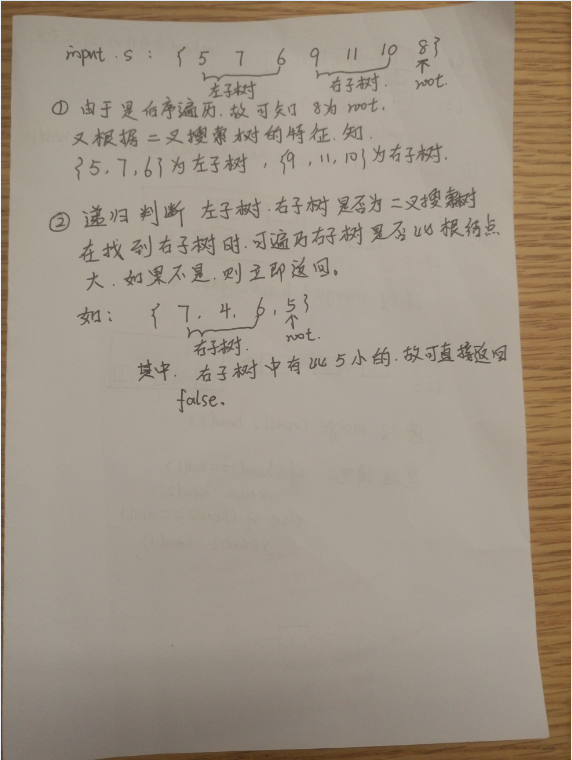 input.s : { 5 7 6 9 11 10 8}
左子树 右子树 root.
① 由于是后序遍历.故可知 8为root.
又根据二叉搜索树的特征.知.
{5,7,6}为左子树,{9,11,10}为右子树.
② 递归判断 左子树.右子树是否为二叉搜索树
在找到右子树时.可遍历右子树是否比根结点
大.如果不是.则立即返回。
如: { 7, 4, 6, 5}
右子树. root.
其中. 右子树中有比5小的.故可直接返回
false。